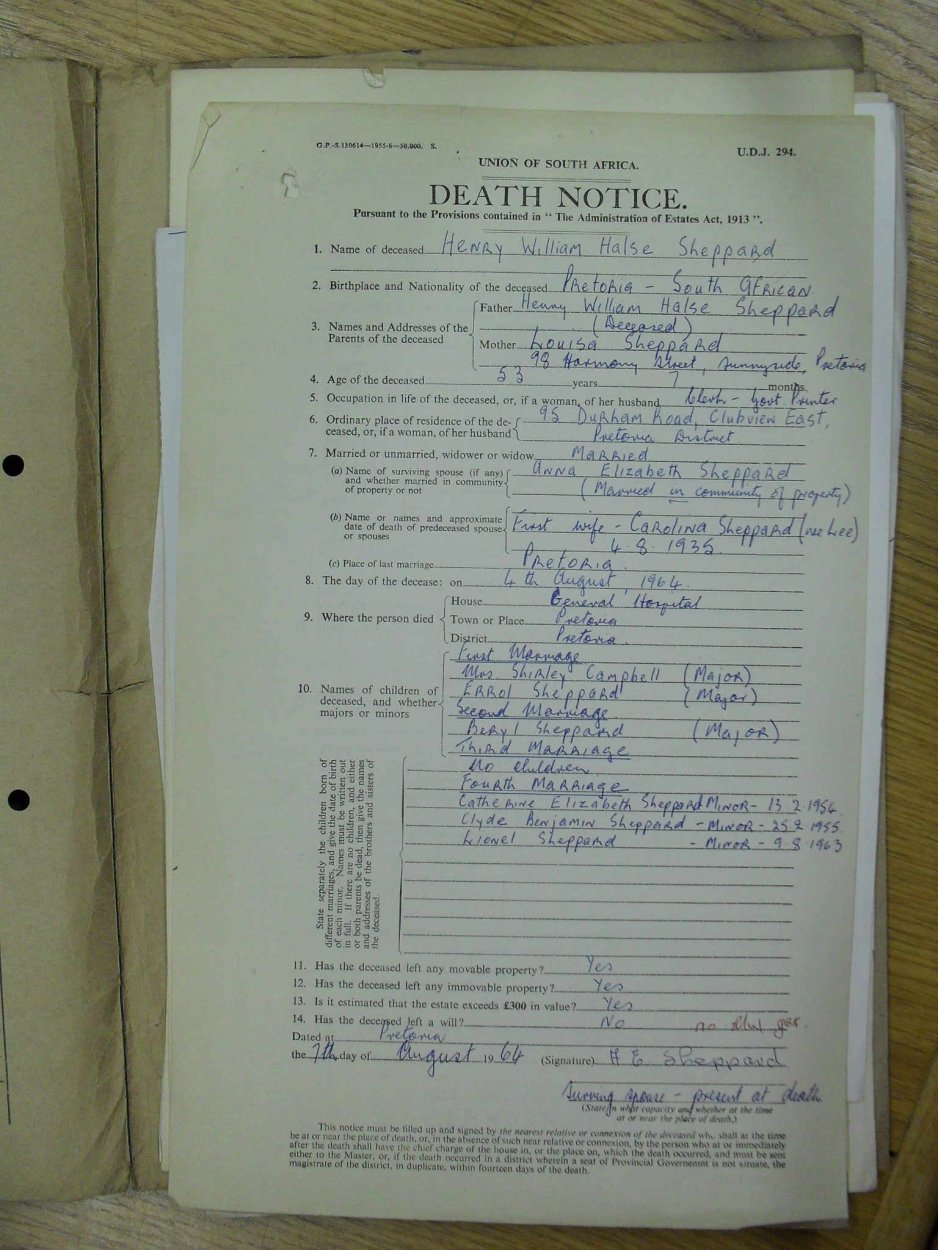 G.P.-S.130614—1955-6—50,000. S.
U.D.J. 294.
UNION OF SOUTH AFRICA.
DEATH NOTICE.
Pursuant to the Provisions contained in " The Administration of Estates Act, 1913 ".
1. Name of deceased Henry William Halse Sheppard
2. Birthplace and Nationality of the deceased Pretoria - South African
3. Names and Addresses of the Parents of the deceased
Father Henry William Halse Sheppard
(Deceased)
Mother Louisa Sheppard
98 Harmony Street, Sunnyside, Pretoria
4. Age of the deceased 53 years 7 months.
5. Occupation in life of the deceased, or, if a woman, of her husband Clerk - Govt. Printer
6. Ordinary place of residence of the de-
ceased, or, if a woman, of her husband
95 Durham Road, Clubview East,
Pretoria District
7. Married or unmarried, widower or widow Married
(a) Name of surviving spouse (if any)
and whether married in community
of property or not
Anna Elizabeth Sheppard
(Married in community of property)
(b) Name or names and approximate
date of death of predeceased spouse
or spouses
First wife - Carolina Sheppard (nee Lee)
4.8.1935
(c) Place of last marriage Pretoria
8. The day of the decease: on 4th August, 1964.
9. Where the person died
House General Hospital
Town or Place Pretoria
District Pretoria
10. Names of children of
deceased, and whether
majors or minors
First Marriage
Mrs Shirley Campbell (Major)
Errol Sheppard (Major)
Second Marriage
Beryl Sheppard (Major)
Third Marriage
No children
Fourth Marriage
Catherine Elizabeth Sheppard Minor - 13.2.1954
Clyde Benjamin Sheppard - Minor - 25.2.1955
Lionel Sheppard - Minor - 9.8.1963
State separately the children born of
different marriages, and give the date of birth
of each minor. Names must be written out
in full. If there are no children, and either
or both parents be dead, then give the names
and addresses of the brothers and sisters of
the deceased.
11. Has the deceased left any movable property? Yes
12. Has the deceased left any immovable property? Yes
13. Is it estimated that the estate exceeds £300 in value? Yes
14. Has the deceased left a will? No no
Dated at Pretoria
the 7th day of August 1964 (Signature) A E Sheppard
Surving spouse - present at death
(State in what capacity and whether at the time
at or near the place of death.)
This notice must be filled up and signed by the nearest relative or connexion of the deceased who shall at the time
be at or near the place of death, or, in the absence of such near relative or connexion, by the person who at or immediately
after the death shall have the chief charge of the house in, or the place on, which the death occurred, and must be sent
either to the Master, or, if the death occurred in a district wherein a seat of Provincial Governemnt is not situate, the
magistrate of the district, in duplicate, within fourteen days of the death.